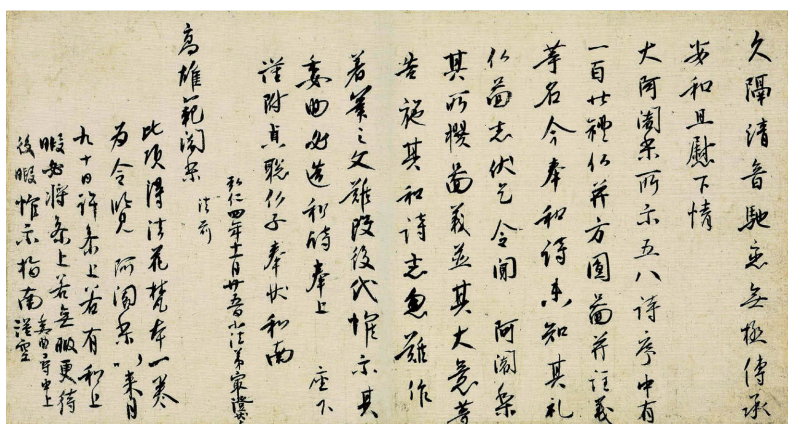 久隔清音馳恋無極傳承
安和且慰下情
大阿闍梨所示五八詩序中有
一百廿禮仏并方圓圖并註義
等名今奉和詩未知其礼
仏圖志伏乞令聞 阿闍梨
其所撰圖義並其大意等
告施其和詩者忽難作
著筆之文難改後代惟示其
委曲必造和詩奉上 座下
謹附貞聡仏子奉状和南
弘仁四年十一月廿五日小法弟最澄状上
高雄範闍梨
法前
此頃得法花梵本一巻
為令覧 阿闍梨以来月
九十日許参上若有和上
暇必将参上若無暇更待
後暇惟示指南 謹空